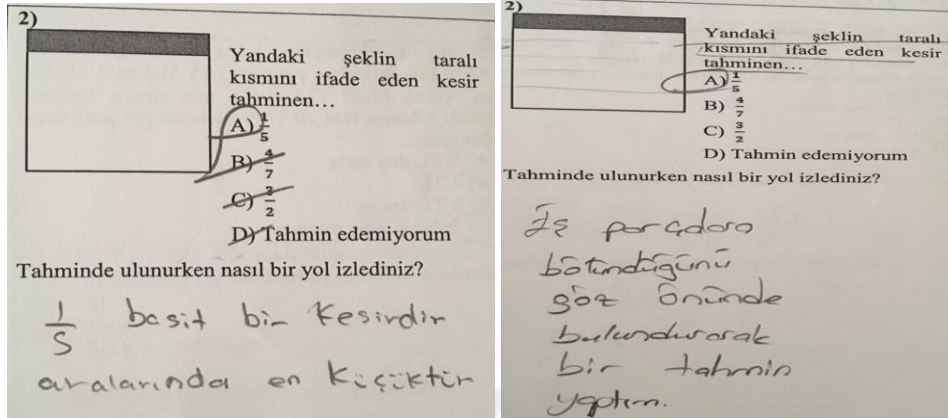 2)
Yandaki şeklin taralı
kısmını ifade eden kesir
tahminen...
A) 1/5
B) 4/7
C) 3/2
D) Tahmin edemiyorum
Tahminde ulunurken nasıl bir yol izlediniz?
1/5 basit bir kesirdir
aralarında en küçüktür
2)
Yandaki şeklin taralı
kısmını ifade eden kesir
tahminen...
A) 1/5
B) 4/7
C) 3/2
D) Tahmin edemiyorum
Tahminde ulunurken nasıl bir yol izlediniz?
parçalara
bölündüğünü
göz önünde
bulundurarak
bir tahmin
yaptım.